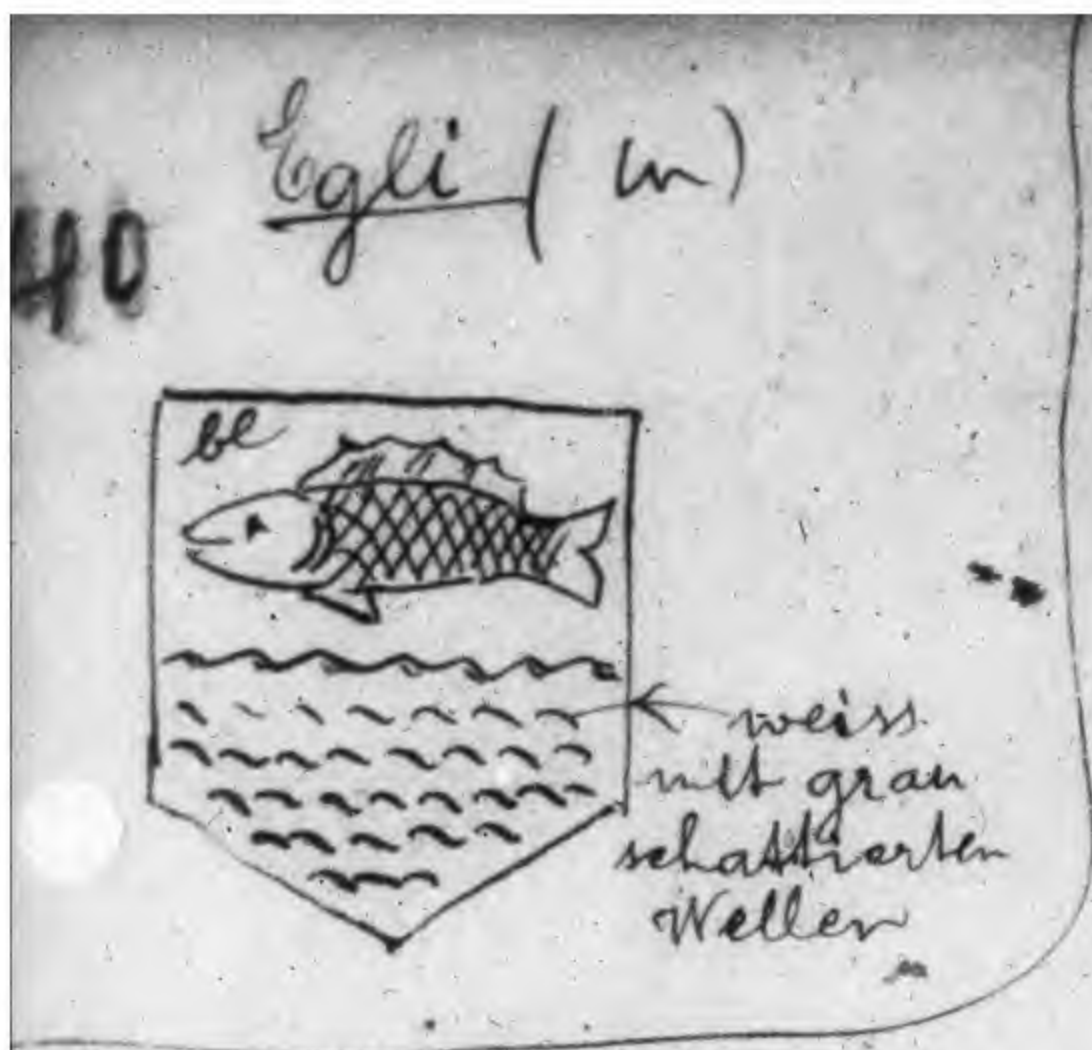 Egli (m)
40
bl
weiss
mit grau
schattierten
Wellen